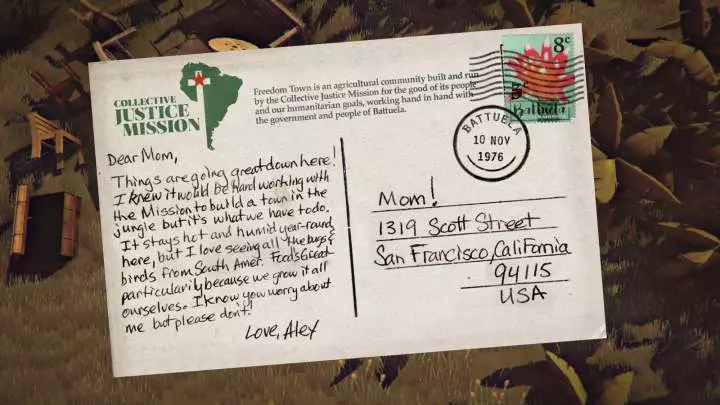 COLLECTIVE
JUSTICE
MISSION
Freedom Town is an agricultural community built and run
by the Collective Justice Mission for the good of its people
and our humanitarian goals, working hand in hand with
the government and people of Battuela.
8c
Battuela
BATTUELA
10 NOV
1976
Dear Mom,
Things are going great down here!
I knew it would be hard working with
the Mission to build a town in the
jungle but it's what we have to do.
It stays hot and humid year-round
here, but I love seeing all the bugs &
birds from South Amer. Food's Great
particularily because we grow it all
ourselves. I know you worry about
me but please don't!
Love, Alex
Mom!
1319 Scott Street
San Francisco, California
94115
USA